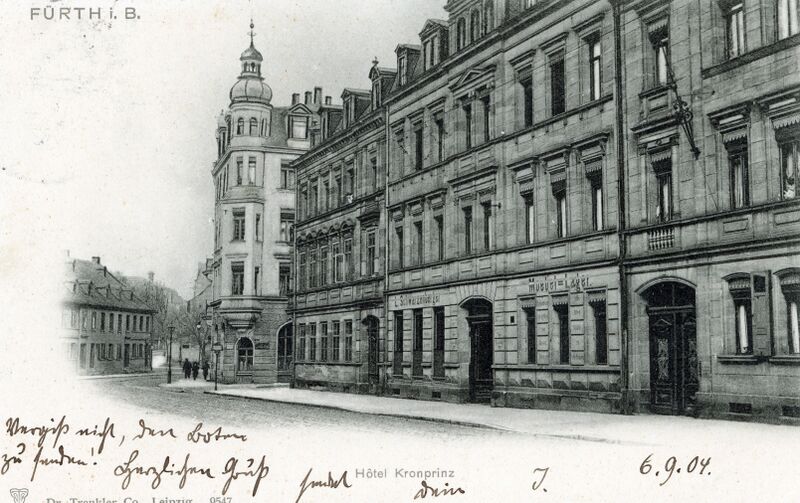 FÜRTH i. B.
L. Schwarzenberger
Moebel=Lager.
Vergiß nicht, den Boten
zu senden! Herzlichen Gruß sendet dein J. 6.9.04.
Hôtel Kronprinz
Dr. Trenkler Co. Leipzig. 9547